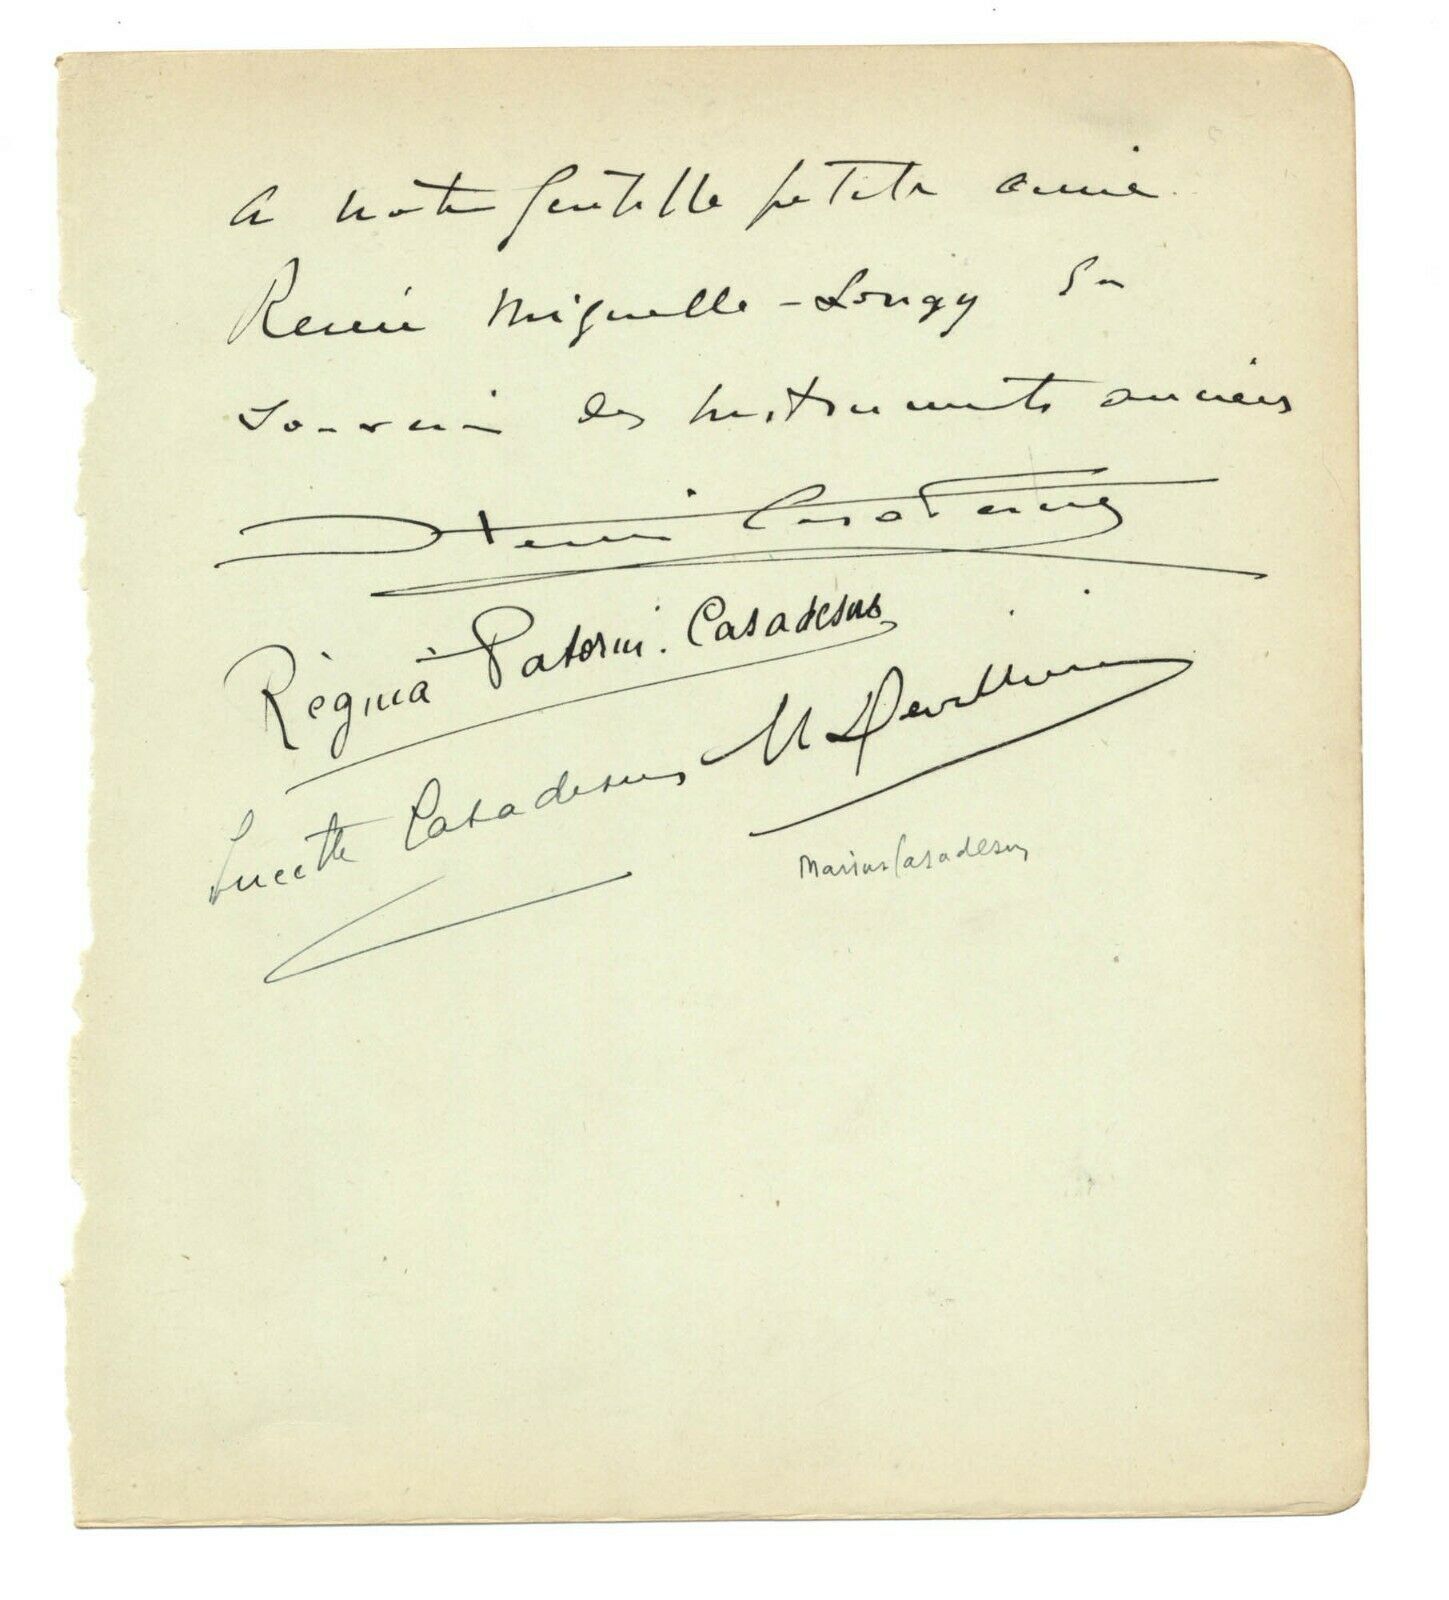 A notre gentille petite amie
Renée Miquelle-Longy En
Souvenir des Instruments anciens
Henri Casadesus
Régina Patorni. Casadesus
M Devilliers
Lucette Casadesus
Marius Casadesus